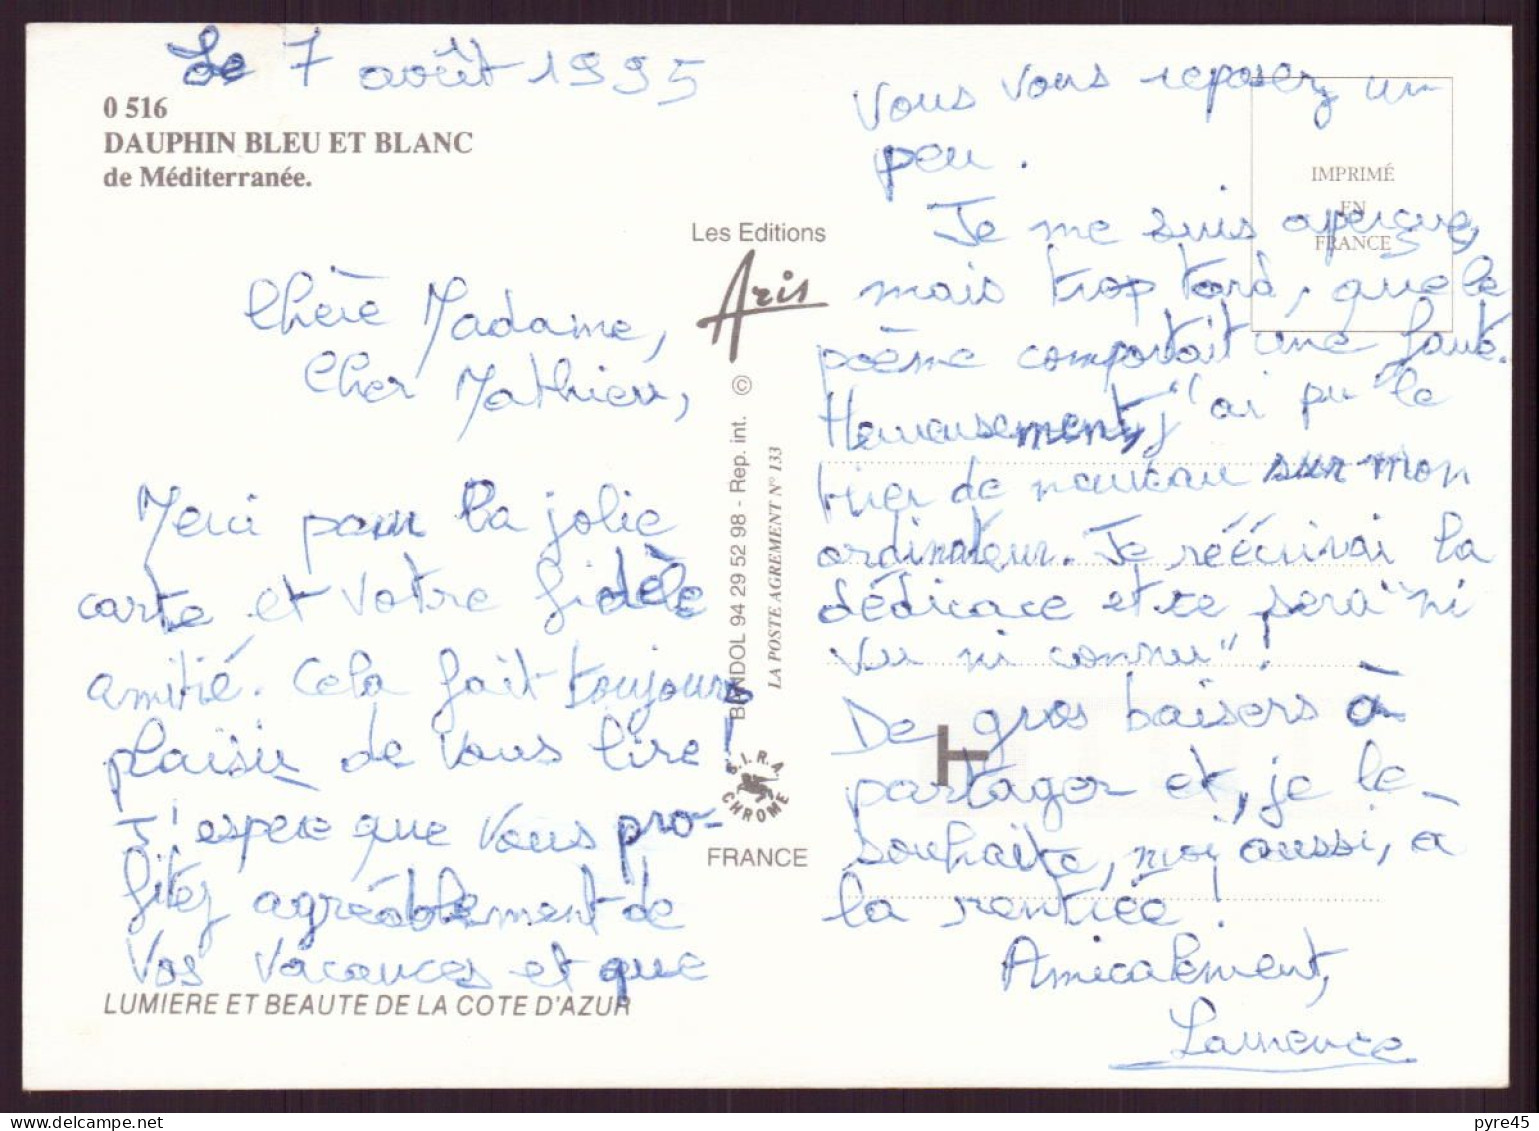 Le 7 août 1995
0 516
DAUPHIN BLEU ET BLANC
de Méditerranée.
Chère Madame,
Cher Mathieu,
Merci pour la jolie
carte et votre fidèle
amitié. Cela fait toujours
plaisir de vous lire !
J'espère que vous pro-
fitez agréablement de
vos vacances et que
LUMIERE ET BEAUTE DE LA COTE D'AZUR
Les Editions
Aris
BANDOL 94 29 52 98 - Rep. int. ©
LA POSTE AGREMENT N° 133
S.I.R.A.
CHROME
FRANCE
IMPRIMÉ
EN
FRANCE
vous vous reposez un
peu.
Je me suis aperçue,
mais trop tard, que le
poème comportait une faute.
Heureusement, j'ai pu le
tirer de nouveau sur mon
ordinateur. Je réécrirai la
dédicace et ce sera "ni
vu ni connu" !
De gros baisers à
partager et, je le
souhaite, moi aussi, à
la rentrée !
Amicalement,
Laurence
pyre45